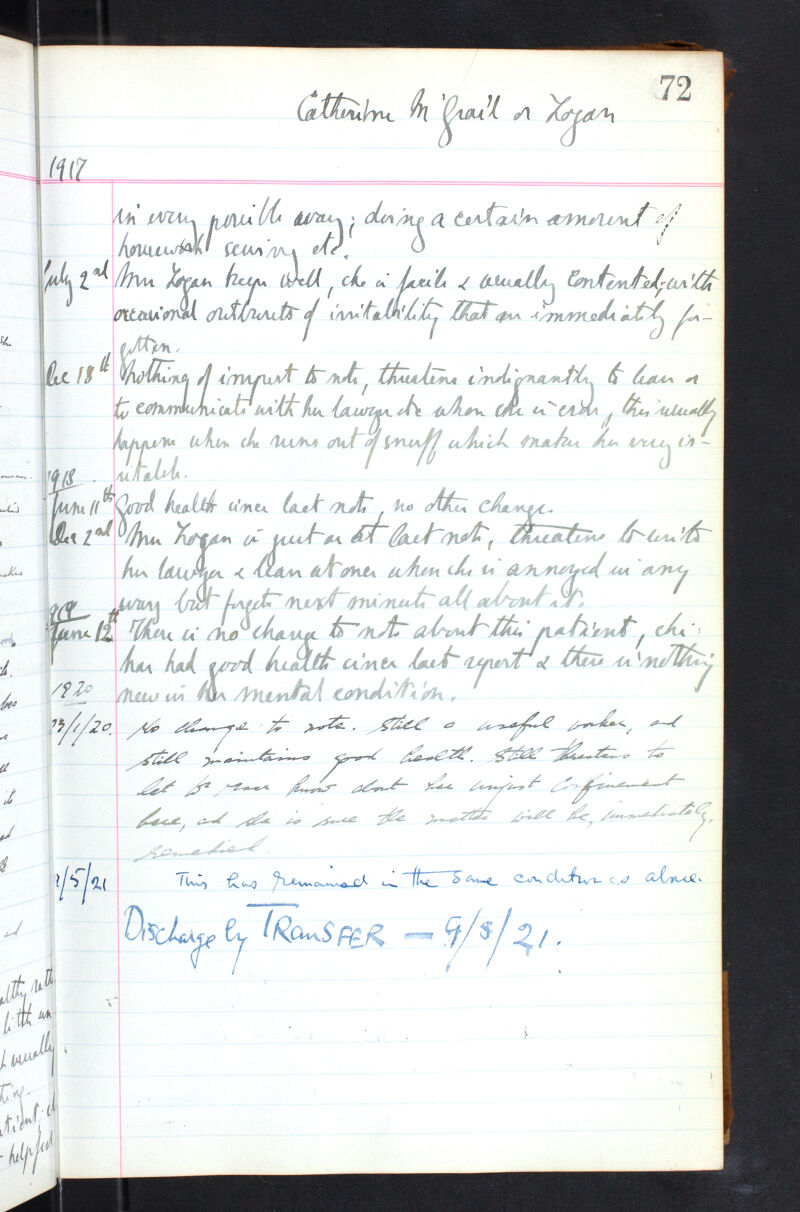 72
Catherine McGrail or Logan
1917
in every possible way; doing a certain amount of
housework sewing etc.
July 2nd Mrs Logan keeps well, she is facile & usually contented; with
occasional outbursts of irritability that are immediately for-
gotten.
Dec 18th Nothing of import to note, threatens indignantly to leave or
to communicate with her lawyer etc when she is cross, this usually
happens when she runs out of snuff which makes her very ir-
ritable.
1918
June 11th Good health since last note, no other change.
Dec 2nd Mrs Logan is just as at last note, threatens to write
her lawyer & leave at once when she is annoyed in any
way but forgets next minute all about it.
1919
June 12th There is no change to note about this patient, she
has had good health since last report & there is nothing
new in her mental condition.
1920
23/1/20. No change to note. Still a useful worker, and
still maintains good health. Still threatens to
let know about her unjust confinement
here, and she is sure the matter will be, immediately,
remedied.
/5/21 This has remained in the same condition as above.
Discharge by TRANSFER — 9/5/21.